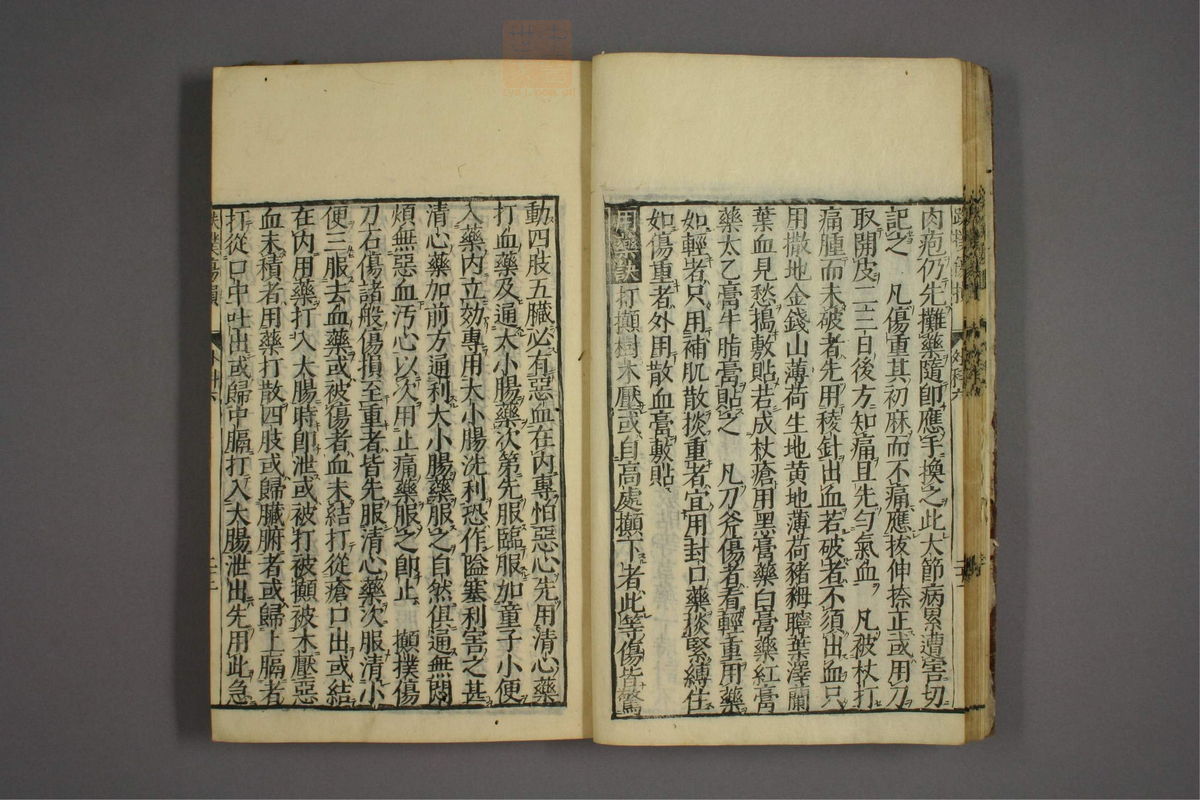 肉疱仍先攤藥隨即應手換之此大節病累遭害切
記之　凡傷重其初麻而不痛應拔伸捺正或用刀
取開皮二三日後方知痛且先勻氣血　凡被杖打
痛腫而未破者先用稜針出血若破者不須出血只
用撒地金錢山薄荷生地黄地薄荷豬䅟聹葉澤蘭
葉血見愁搗敷貼若成杖瘡用黑膏藥白膏藥紅膏
藥太乙膏牛脂膏貼之　凡刀斧傷者看輕重用藥
如輕者只用補肌散掞重者宜用封口藥掞緊縛住
如傷重者外用散血膏敷貼
用藥訣 打攧樹木壓或自高處攧下者此等傷皆驚
動四肢五臟必有惡血在內專怕惡心先用清心藥
打血藥及通大小腸藥次第先服臨服加童子小便
入藥內立効專用大小腸洗利恐作隘塞利害之甚
清心藥加前方通利大小腸藥服之自然俱通無悶
煩無惡血汚心以次用止痛藥服之即止　攧撲傷
刀石傷諸般傷損至重者皆先服清心藥次服清小
便三服去血藥或被傷者血未結打從瘡口出或結
在內用藥打入大腸時即泄或被打被攧被木壓惡
血未積者用藥打散四肢或歸臟腑者或歸上膈者
打從口中吐出或歸中膈打入大腸泄出先用此急